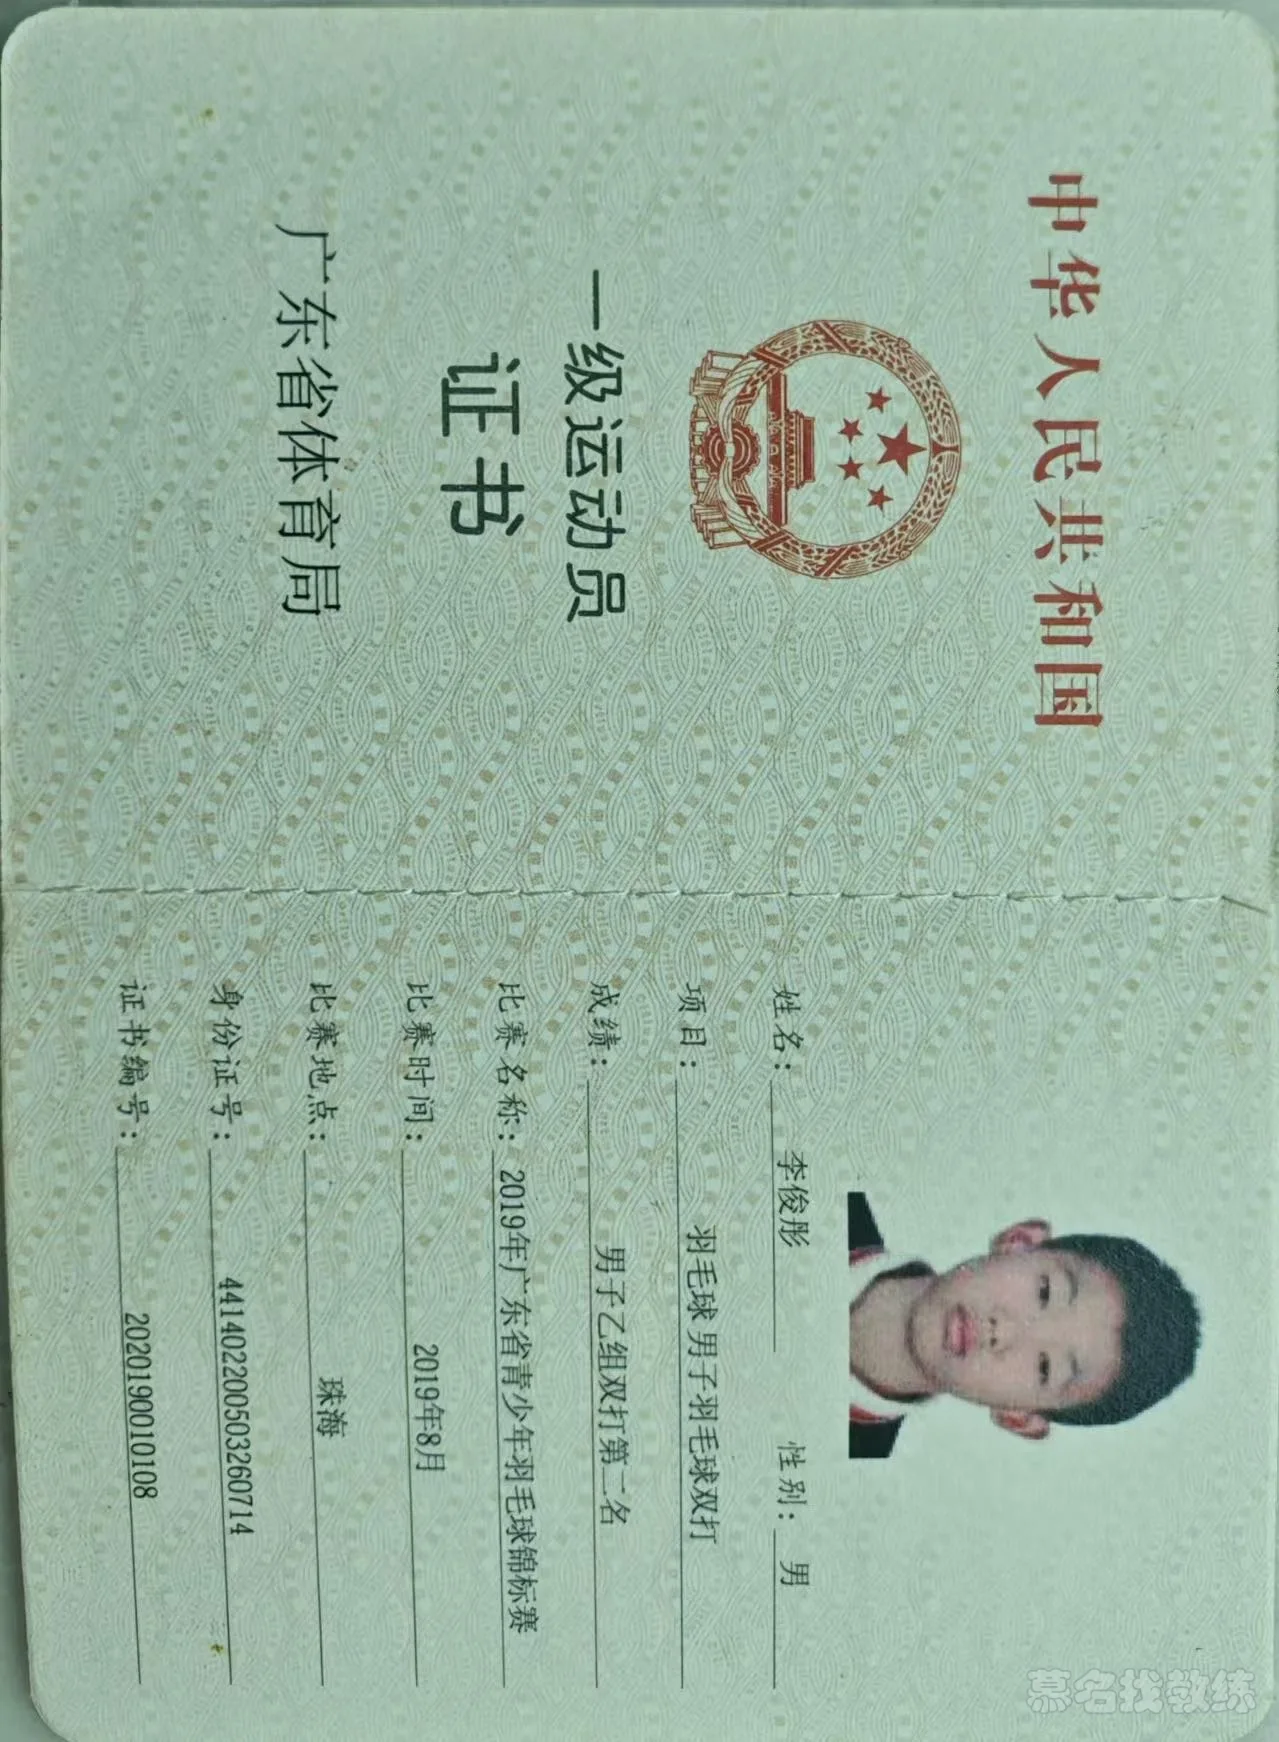 中华人民共和国
一级运动员
证书
广东省体育局
姓名：李俊彤 性别：男
项目：羽毛球 男子羽毛球双打
成绩：男子乙组双打第二名
比赛名称：2019年广东省青少年羽毛球锦标赛
比赛时间：2019年8月
比赛地点：珠海
身份证号：441402200503260714
证书编号：2020190010108
慕名找教练